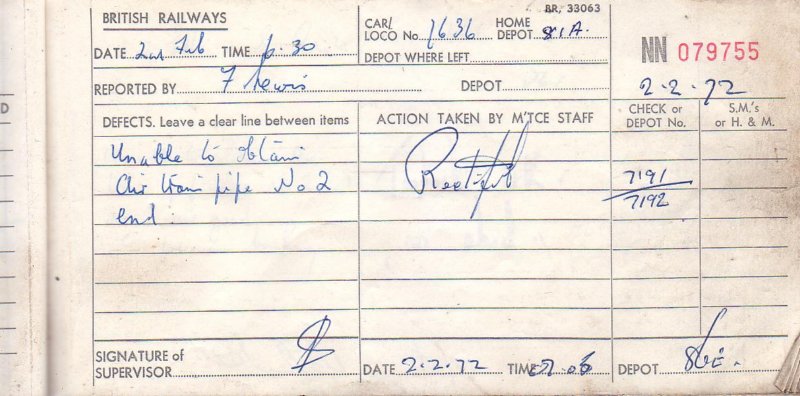 BR. 33063
BRITISH RAILWAYS
CAR/ LOCO No. 1636 HOME DEPOT 81A.
NN 079755
DATE 2nd Feb TIME 6.30
DEPOT WHERE LEFT
REPORTED BY F Lewis DEPOT
2.2.72
DEFECTS. Leave a clear line between items
ACTION TAKEN BY M'TCE STAFF
CHECK or DEPOT No.
S.M.'s or H. & M.
Unable to obtain
Air train pipe No 2
end.
Rectified
7191
7192
SIGNATURE of SUPERVISOR
DATE 2.2.72 TIME
DEPOT
D